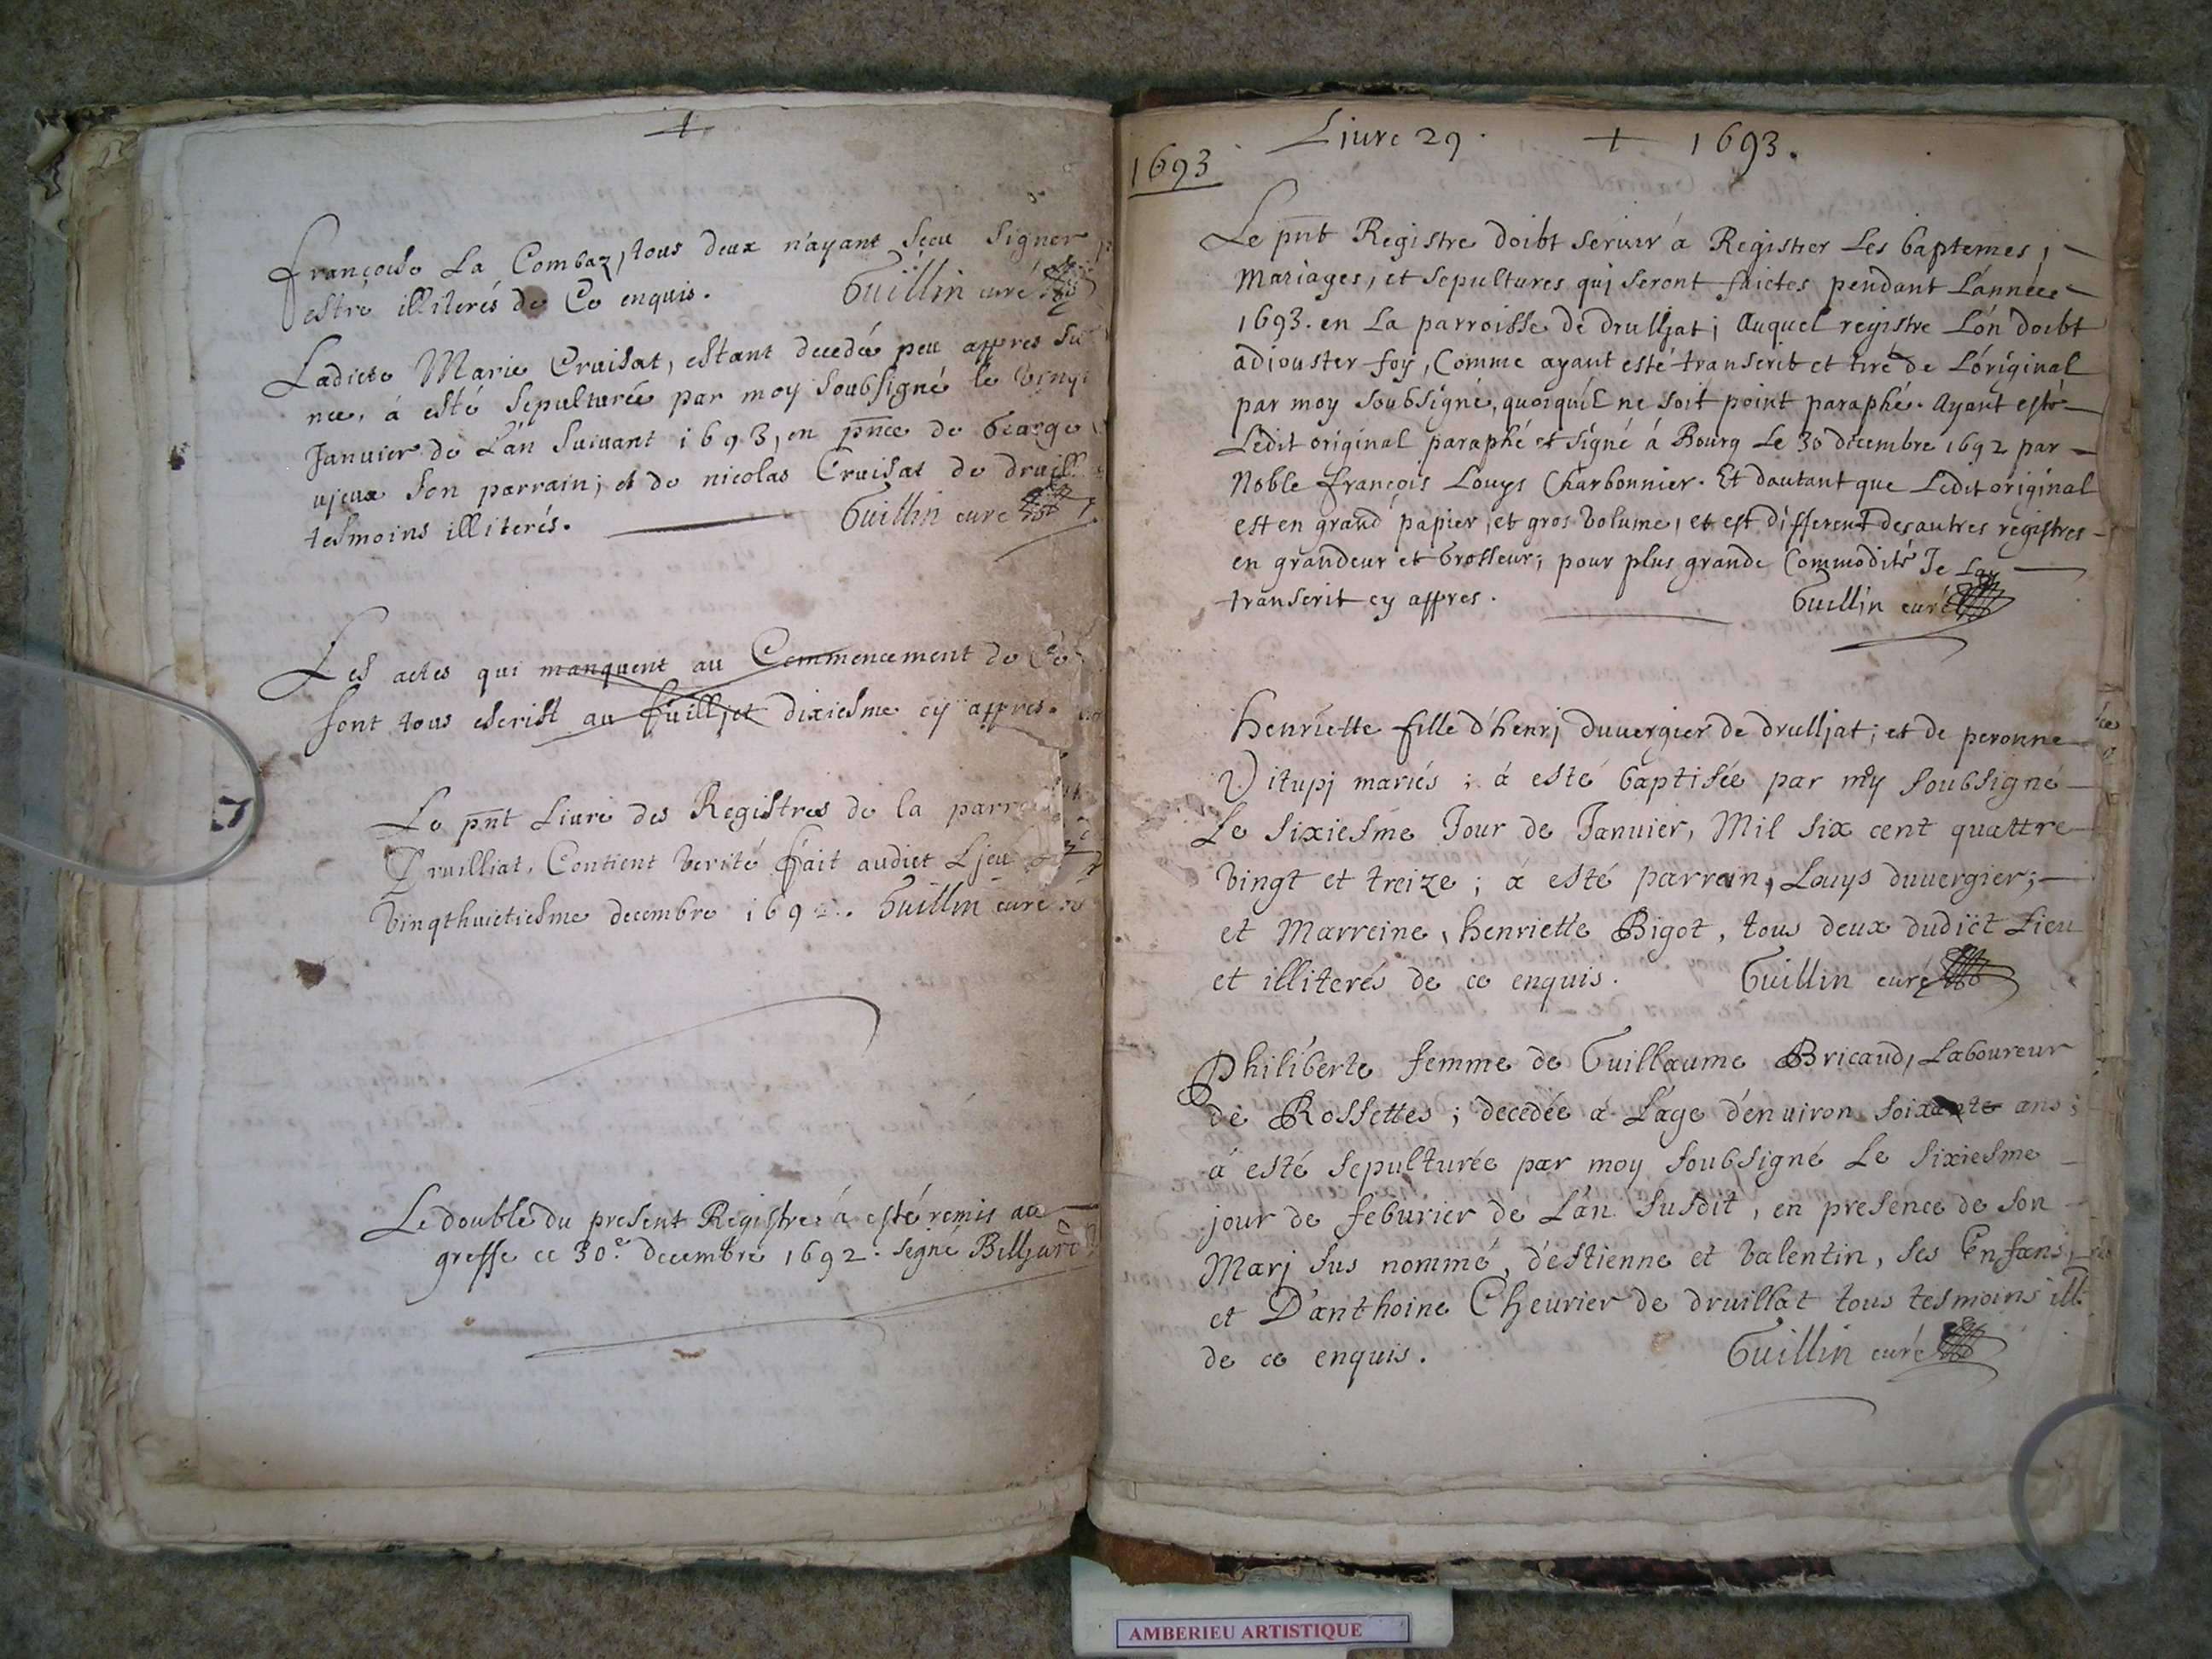 +
françoise La Combaz, tous deux n'ayant sceu signer
estre illiterés de Ce enquis. Guillin curé
Ladicte Marie Cruisat, estant decedée peu appres sa
nce, à esté sepulturée par moy soubsigné le
Januier de L'an suiuant 1693, en pnce de George
ujeux son parrain; et de nicolas Cruisat de
tesmoins illiterés. Guillin curé
Les actes qui manquent au Commencement de Ce
sont tous escrist au fuilljet dixiesme cy appres.
Le pnt Liure des Registres de la
Druilliat, Contient verité fait audict Ljeu
vingthuictiesme decembre 1692. Guillin curé
Le double du present Registre à esté remis au
greffe ce 30.e decembre 1692. Signé Billjard
Liure 29. + 1693.
1693
Le pnt Registre doibt seruir à Registrer Les baptemes,
Mariages, et sepultures qui seront faictes pendant L'année
1693. en La parroisse de drulljat; Auquel registre L'on doibt
adiouster foy, Comme ayant esté transcrit et tiré de L'original
par moy soubsigné, quoiqu'il ne soit point paraphé. Ayant esté
Ledit original paraphé et signé à Bourg Le 30 decembre 1692 par
Noble françois Louys Charbonnier. Et dautant que Ledit original
est en grand papier, et gros volume, et est different des autres registres
en grandeur et Grosseur; pour plus grande Commodité Je Lay
transcrit cy appres. Guillin curé
Henriette fille d'henrj duuergier de drulljat; et de peronne
Vitupj mariés; à esté baptisée par moy soubsigné
Le sixiesme Jour de Januier, Mil six cent quattre
vingt et treize; à esté parrain, Louys duuergier;
et Marreine, henriette Bigot, tous deux dudict Lieu
et illiterés de ce enquis. Guillin curé
Philiberte femme de Guillaume Bricaud, Laboureur
de Rossettes; decedée à L'age d'enuiron soixante ans;
à esté sepulturée par moy soubsigné Le sixiesme
jour de feburier de L'an susdit, en presence de son
Marj sus nommé, d'estienne et valentin, ses Enfans,
et D'anthoine Cheurier de druillat tous tesmoins ill.
de ce enquis. Guillin curé
AMBERIEU ARTISTIQUE